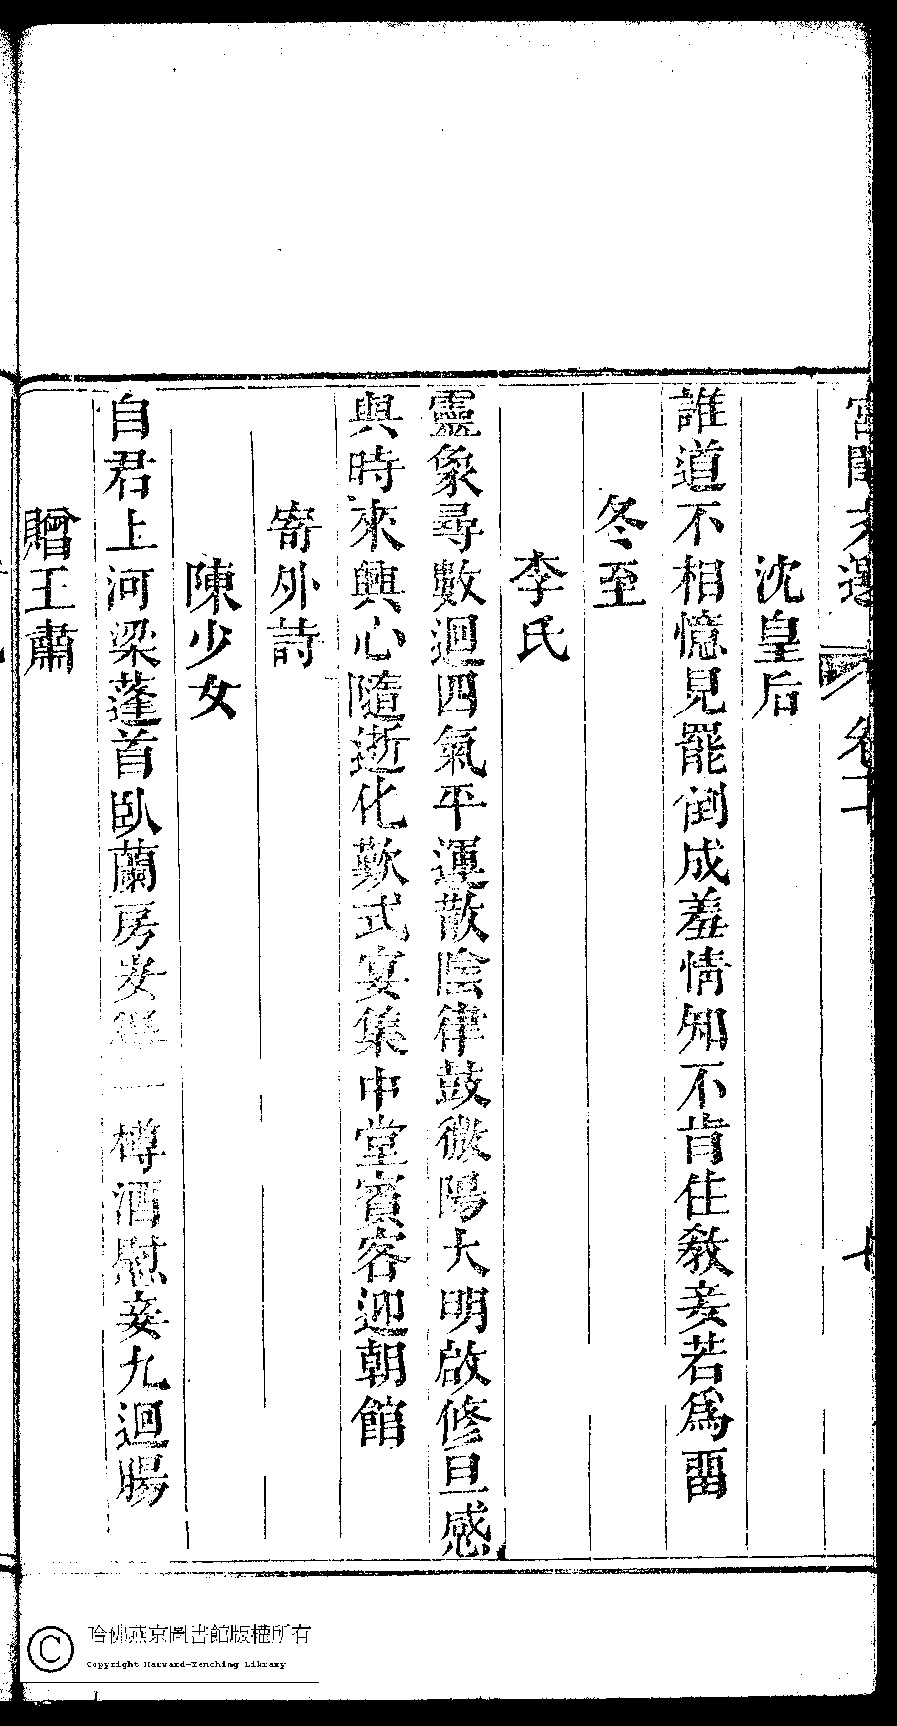 宮閨文選 卷二十
沈皇后
誰道不相憶見罷倒成羞情知不肯住敎妾若爲畱
冬至
李氏
靈象尋數迴四氣平運散陰律鼓微陽大明啟修旦感
與時來興心隨逝化歎式宴集中堂賓客迎朝館
寄外詩
陳少女
自君上河梁蓬首臥蘭房安得一樽酒慰妾九迴腸
贈王肅
哈佛燕京圖書館版權所有
Copyright Harvard-Yenching Library